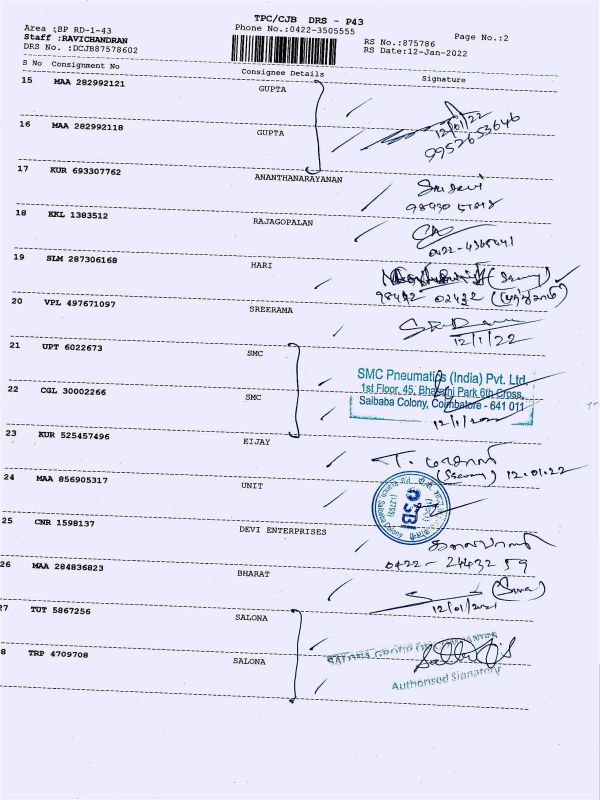 TPC/CJB DRS - P43
Area :BP RD-1-43
Phone No.:0422-3505555
Page No.:2
Staff :RAVICHANDRAN
RS No.:875786
DRS No. :DCJB87578602
RS Date:12-Jan-2022
S No Consignment No Consignee Details Signature
15 MAA 282992121 GUPTA
12/01/22
16 MAA 282992118 GUPTA
9952653646
17 KUR 693307762 ANANTHANARAYANAN
Sridevi
18 KKL 1383512 RAJAGOPALAN
19 SLM 287306168 HARI
98422 02432
20 VPL 497671097 SREERAMA
12/1/22
21 UPT 6022673 SMC
SMC Pneumatics (India) Pvt. Ltd.
1st Floor, 45, Bharathi Park 6th Cross,
22 CGL 30002266 SMC
Saibaba Colony, Coimbatore - 641 011
23 KUR 525457496 EIJAY
12.01.22
24 MAA 856905317 UNIT
SBI
Saibaba Colony
25 CNR 1598137 DEVI ENTERPRISES
0422 - 2443259
26 MAA 284836823 BHARAT
27 TUT 5867256 SALONA
SALONA GROUP OF COMPANIES
8 TRP 4709708 SALONA
Authorised Signatory